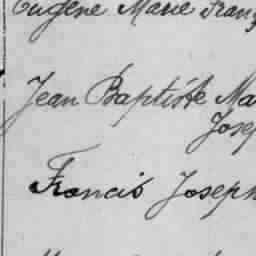 Eugene Marie Franç
Jean Baptiste Ma
Josep
Francis Joseph